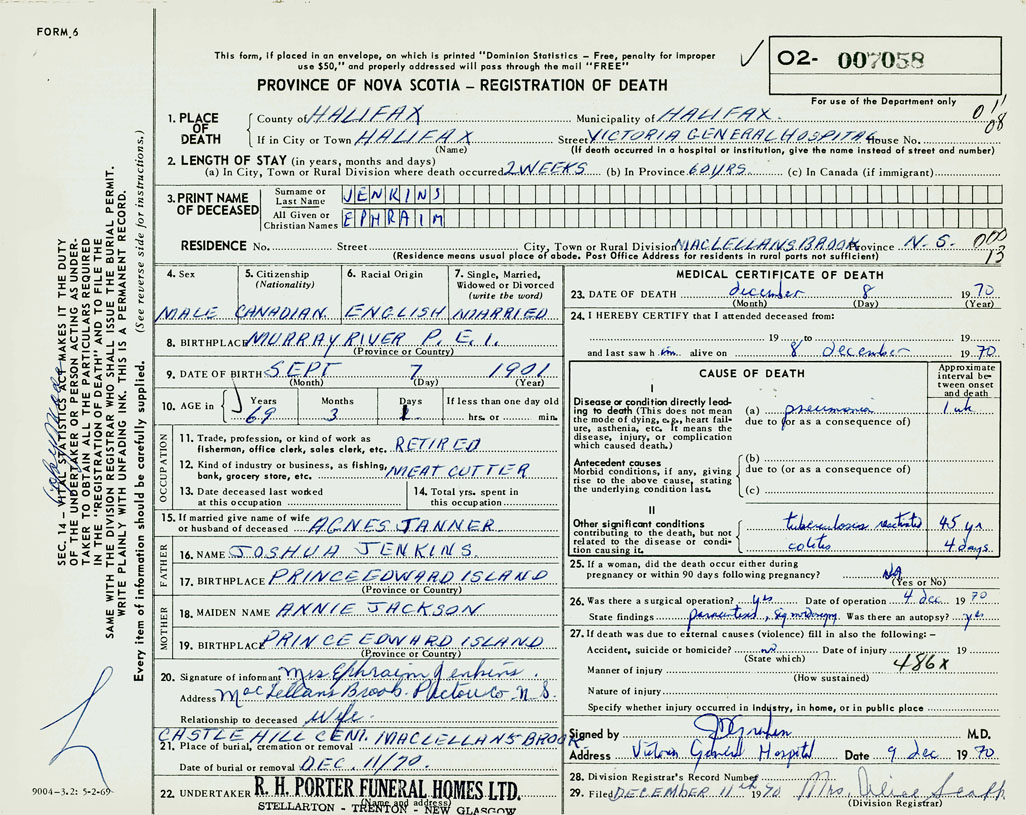 FORM 6
This form, if placed in an envelope, on which is printed "Dominion Statistics – Free, penalty for improper
use $50," and properly addressed will pass through the mail "FREE"
PROVINCE OF NOVA SCOTIA – REGISTRATION OF DEATH
02- 007058
For use of the Department only
011
08
1. PLACE OF DEATH
County of HALIFAX Municipality of HALIFAX.
If in City or Town HALIFAX Street VICTORIA GENERAL HOSPITAL House No.
(Name) (If death occurred in a hospital or institution, give the name instead of street and number)
2. LENGTH OF STAY (in years, months and days)
(a) In City, Town or Rural Division where death occurred 2 WEEKS (b) In Province 60 YRS. (c) In Canada (if immigrant)
3. PRINT NAME OF DECEASED
Surname or Last Name JENKINS
All Given or Christian Names EPHRAIM
RESIDENCE No. Street City, Town or Rural Division MACLELLANS BROOK Province N.S. 000
13
(Residence means usual place of abode. Post Office Address for residents in rural parts not sufficient)
4. Sex MALE
5. Citizenship (Nationality) CANADIAN
6. Racial Origin ENGLISH
7. Single, Married, Widowed or Divorced (write the word) MARRIED
8. BIRTHPLACE MURRAY RIVER P.E.I.
(Province or Country)
9. DATE OF BIRTH SEPT 7 1901
(Month) (Day) (Year)
10. AGE in Years 69 Months 3 Days 1 If less than one day old hrs. or min.
OCCUPATION
11. Trade, profession, or kind of work as
fisherman, office clerk, sales clerk, etc. RETIRED
12. Kind of industry or business, as fishing,
bank, grocery store, etc. MEAT CUTTER
13. Date deceased last worked
at this occupation
14. Total yrs. spent in
this occupation
15. If married give name of wife
or husband of deceased AGNES TANNER
FATHER
16. NAME JOSHUA JENKINS.
17. BIRTHPLACE PRINCE EDWARD ISLAND
(Province or Country)
MOTHER
18. MAIDEN NAME ANNIE JACKSON
19. BIRTHPLACE PRINCE EDWARD ISLAND
(Province or Country)
20. Signature of informant Mrs Ephraim Jenkins.
Address MacLellans Brook Pictou Co N.S.
Relationship to deceased Wife.
CASTLE HILL CEM. MACLELLANS BROOK
21. Place of burial, cremation or removal
Date of burial or removal DEC. 11/70.
22. UNDERTAKER R. H. PORTER FUNERAL HOMES LTD.
(Name and address)
STELLARTON - TRENTON - NEW GLASGOW
MEDICAL CERTIFICATE OF DEATH
23. DATE OF DEATH december 8 1970
(Month) (Day) (Year)
24. I HEREBY CERTIFY that I attended deceased from:
19 to 19
and last saw h im alive on 8 december 1970
CAUSE OF DEATH
Approximate interval between onset and death
I
Disease or condition directly leading to death (This does not mean the mode of dying, e.g., heart failure, asthenia, etc. It means the disease, injury, or complication which caused death.)
(a) pneumonia 1 wk
due to (or as a consequence of)
Antecedent causes
Morbid conditions, if any, giving rise to the above cause, stating the underlying condition last.
(b)
due to (or as a consequence of)
(c)
II
Other significant conditions contributing to the death, but not related to the disease or condition causing it.
tuberculosis reactivated 45 yr.
colitis 4 days.
25. If a woman, did the death occur either during
pregnancy or within 90 days following pregnancy? NA
(Yes or No)
26. Was there a surgical operation? yes Date of operation 4 dec 1970
State findings Was there an autopsy? yes
27. If death was due to external causes (violence) fill in also the following: –
Accident, suicide or homicide? no Date of injury 19
(State which)
Manner of injury 486x
(How sustained)
Nature of injury
Specify whether injury occurred in industry, in home, or in public place
Signed by M.D.
Address Victoria General Hospital Date 9 dec 1970
28. Division Registrar's Record Number
29. Filed DECEMBER 11th 1970 Mrs.
(Division Registrar)
SEC. 14 – VITAL STATISTICS ACT MAKES IT THE DUTY
OF THE UNDERTAKER OR PERSON ACTING AS UNDER-
TAKER TO OBTAIN ALL THE PARTICULARS REQUIRED
IN THE "REGISTRATION OF DEATH" AND TO FILE THE
SAME WITH THE DIVISION REGISTRAR WHO SHALL ISSUE THE BURIAL PERMIT.
WRITE PLAINLY WITH UNFADING INK. THIS IS A PERMANENT RECORD.
Every item of information should be carefully supplied. (See reverse side for instructions.)
9004-3.2: 5-2-69